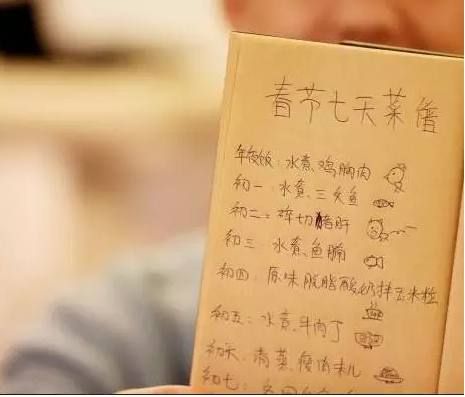 春节七天菜谱
年夜饭：水煮鸡胸肉
初一：水煮三文鱼
初二：碎切猪肝
初三：水煮鱼腩
初四：原味脱脂酸奶拌玉米粒
初五：水煮牛肉丁
初六：青菜瘦肉末儿
初七：